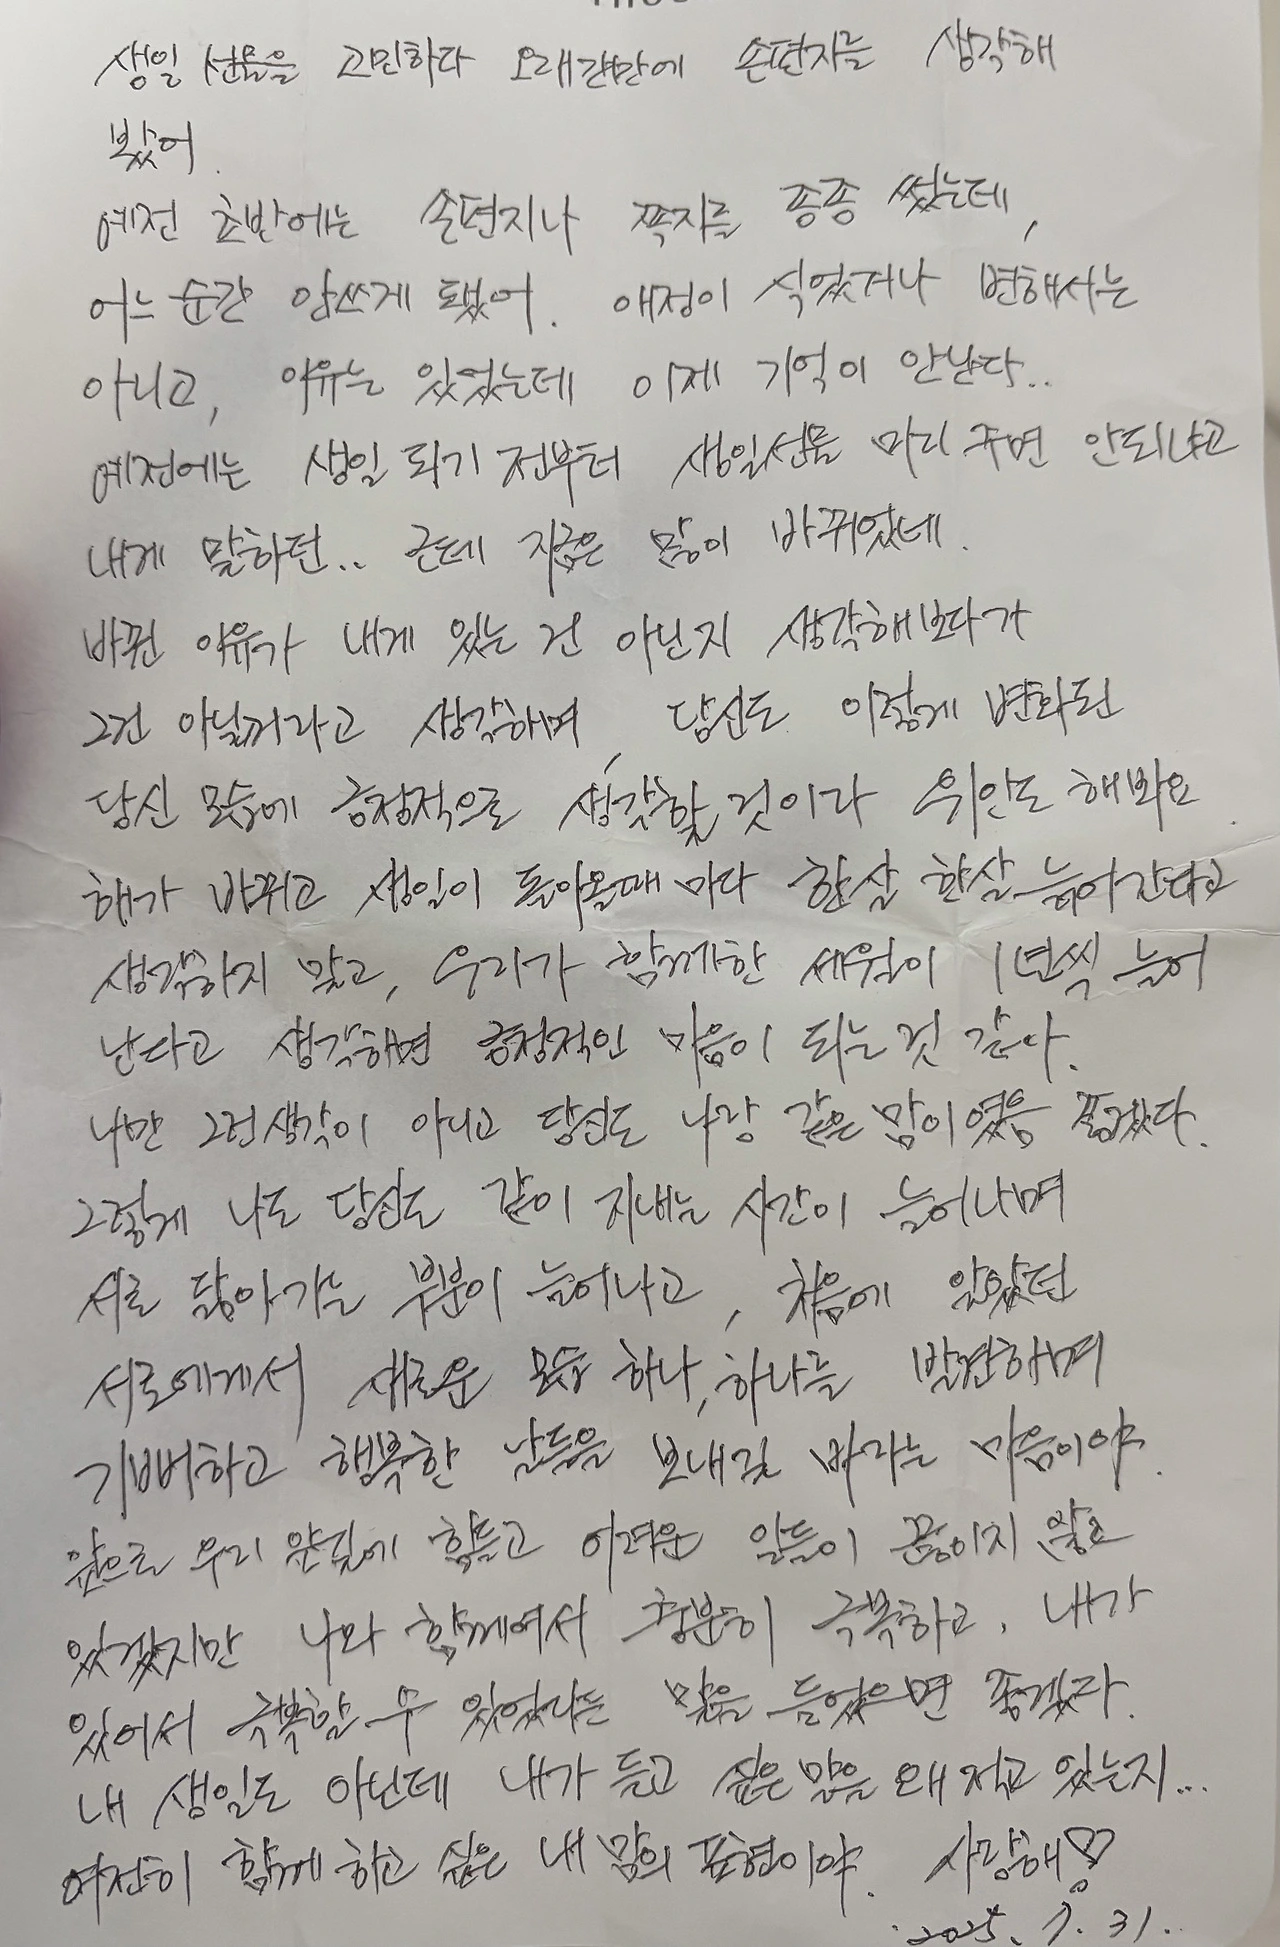 생일 선물을 고민하다 오래간만에 손편지를 생각해
봤어.
예전 초반에는 손편지나 쪽지를 종종 썼는데,
어느 순간 안쓰게 됐어. 애정이 식었거나 변해서는
아니고, 이유는 있었는데 이제 기억이 안난다..
예전에는 생일 되기 전부터 생일선물 미리 주면 안되냐고
내게 말하던.. 근데 지금은 많이 바뀌었네.
바뀐 이유가 내게 있는 건 아닌지 생각해보다가
그건 아닐꺼라고 생각하며, 당신도 이렇게 변화된
당신 모습에 긍정적으로 생각할 것이라 위안도 해봐요.
해가 바뀌고 생일이 돌아올때 마다 한살 한살 늙어간다고
생각하지 말고, 우리가 함께한 세월이 1년씩 늘어
난다고 생각해면 긍정적인 마음이 되는 것 같다.
나만 그런생각이 아니고 당신도 나랑 같은 맘이였음 좋겠다.
그렇게 나도 당신도 같이 지내는 시간이 늘어나며
서로 닮아가는 부분이 늘어나고, 처음에 알았던
서로에게서 새로운 모습 하나, 하나를 발견하며
기뻐하고 행복한 날들을 보내길 바라는 마음이야.
앞으로 우리 앞길에 힘들고 어려운 일들이 끊이지 않고
있겠지만 나와 함께여서 충분히 극복하고, 내가
있어서 극복할 수 있었다는 말을 들었으면 좋겠다.
내 생일도 아닌데 내가 듣고 싶은 말을 왜 적고 있는지...
여전히 함께 하고 싶은 내 맘의 표현이야. 사랑해♡
2025. 7. 31.